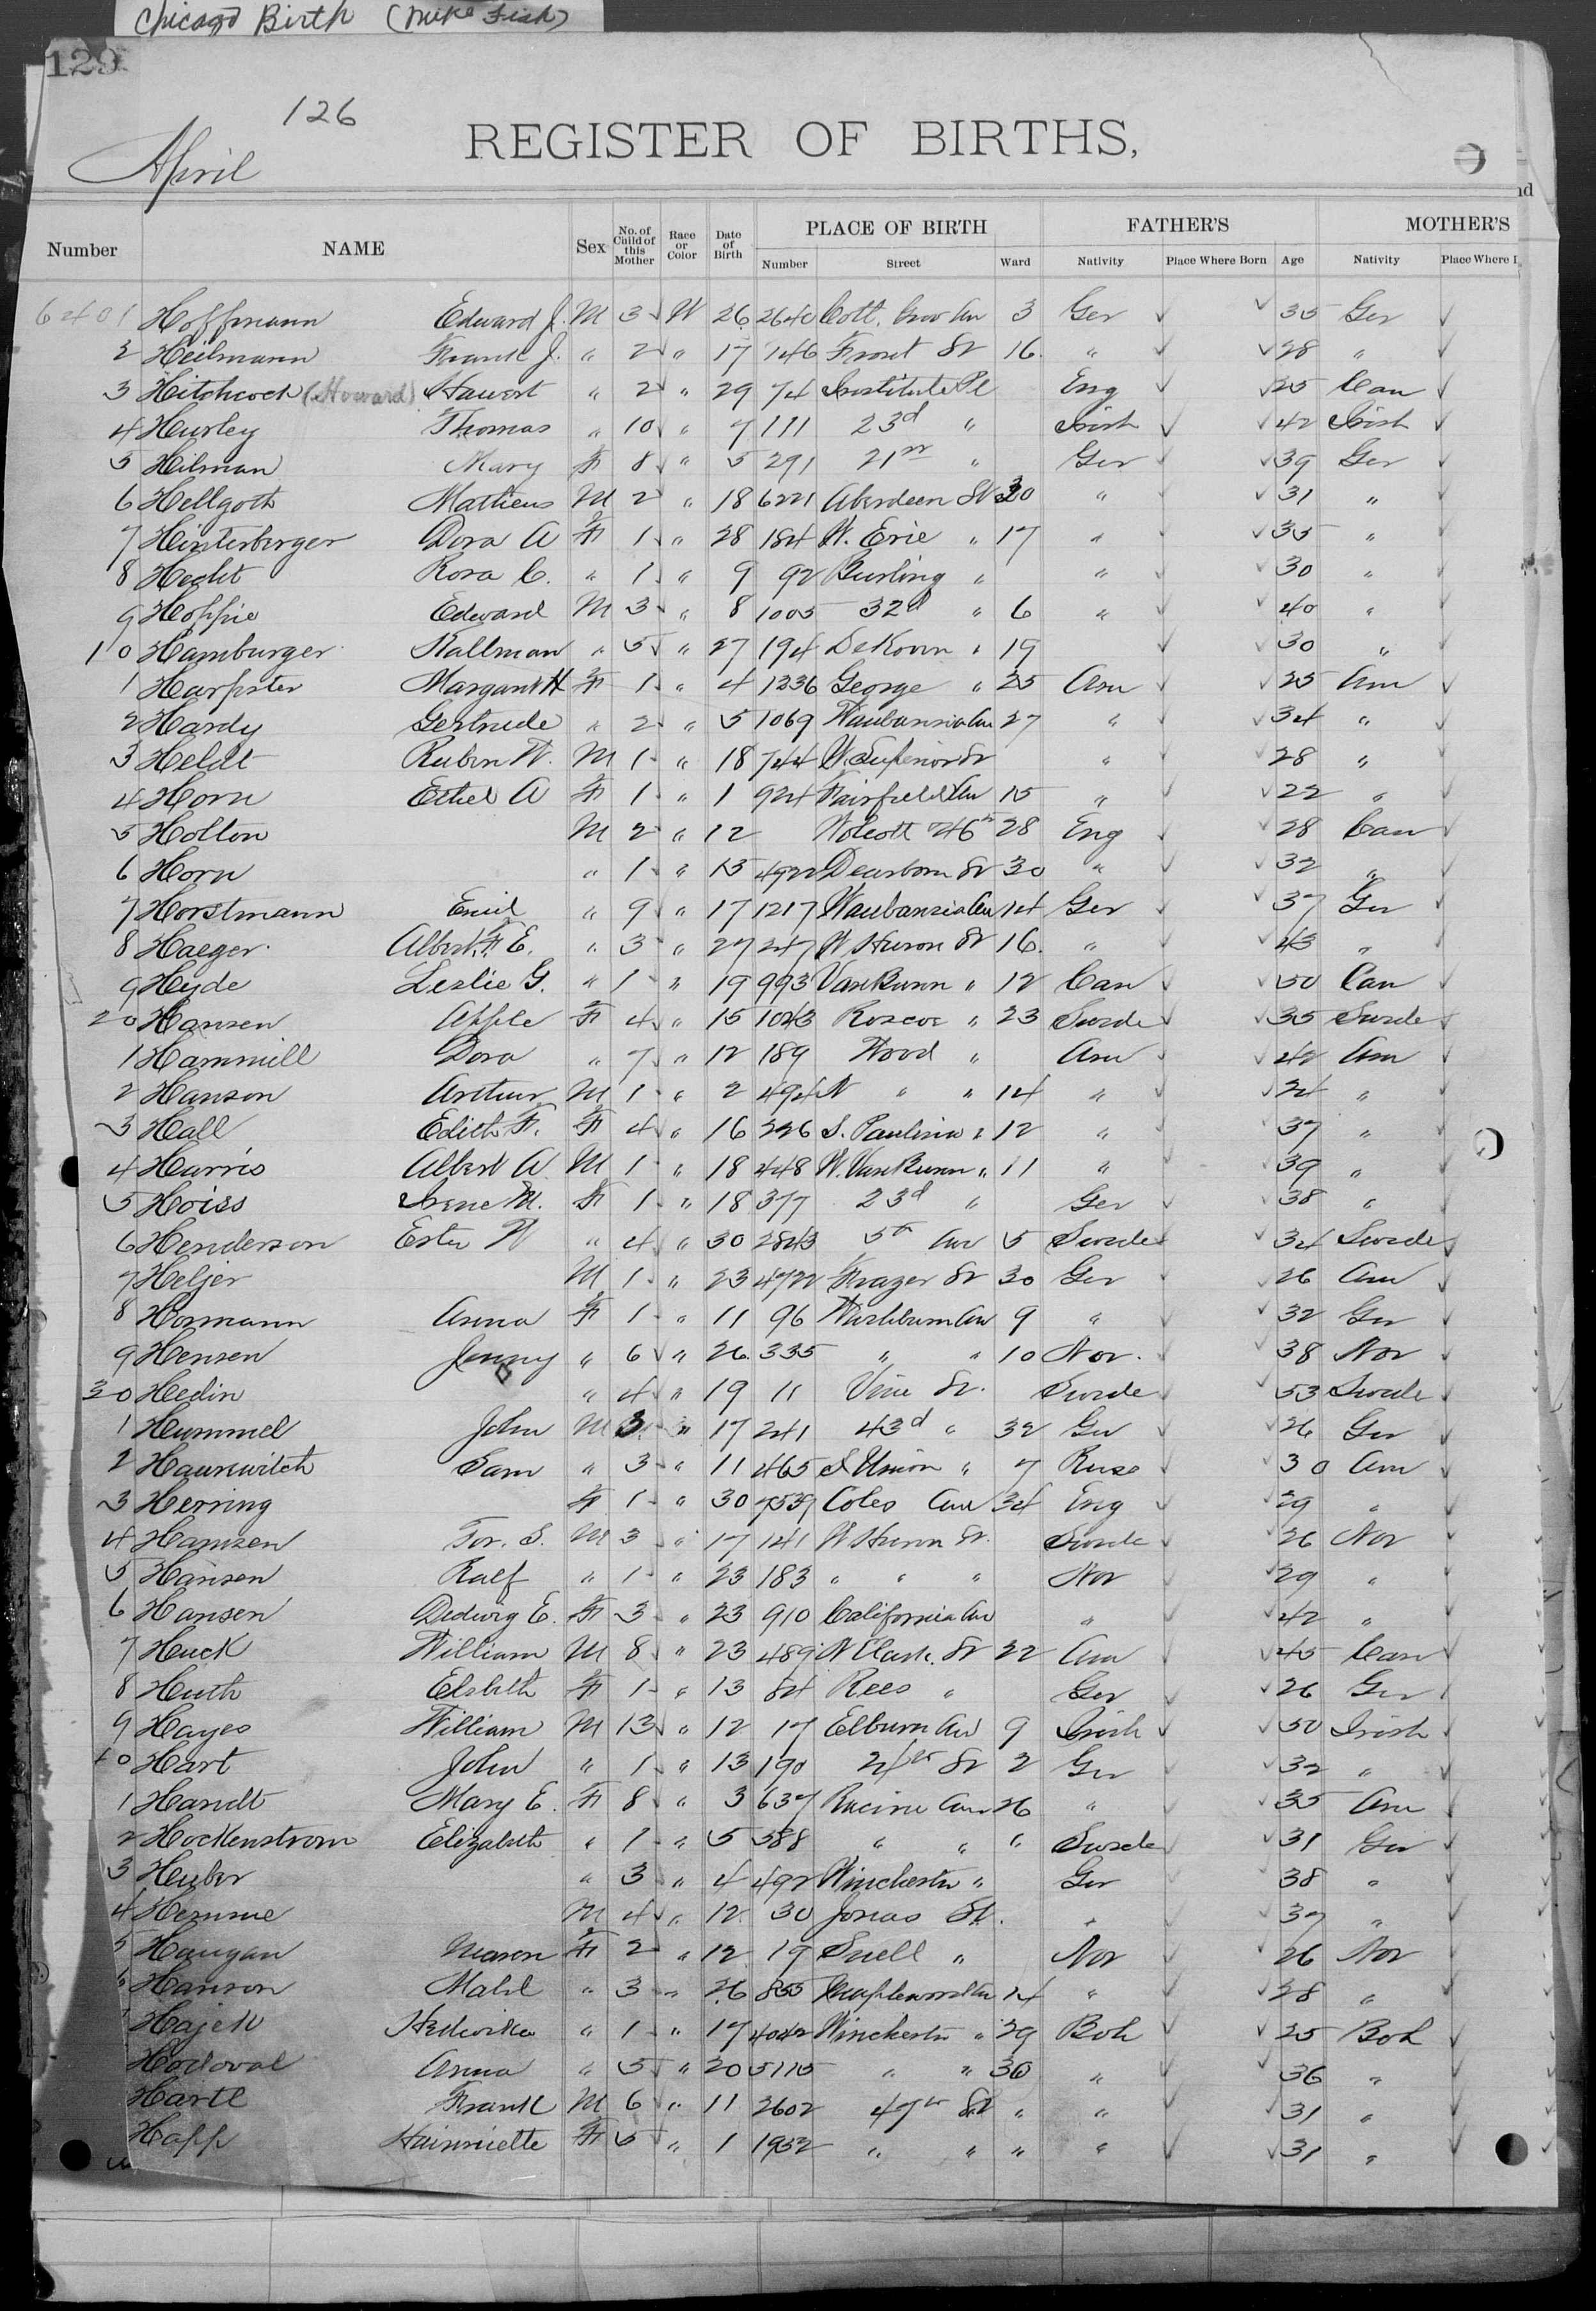 Chicago Birth (Mike Fish)
129
126
REGISTER OF BIRTHS,
April
Number NAME Sex No. of Child of this Mother Race or Color Date of Birth PLACE OF BIRTH Number Street Ward FATHER'S Nativity Place Where Born Age MOTHER'S Nativity Place Where
6401 Hoffmann Edward J. M 3 W 26 2640 Cott. Grov Av 3 Ger ✓ ✓ 35 Ger ✓
2 Heilmann Frank J. " 2 " 17 746 Front St 16. " ✓ ✓ 28 " ✓
3 Hitchcock (Howard) Hawert " 2 " 29 74 Institute Pl Eng ✓ ✓ 25 Can ✓
4 Hurley Thomas " 10 " 7 111 23d " Irish ✓ ✓ 42 Irish ✓
5 Hilman Mary F 8 " 5 291 21st " Ger ✓ ✓ 39 Ger ✓
6 Hellgoth Matheus M 2 " 18 6221 Aberdeen St 30 " ✓ ✓ 31 " ✓
7 Hinterberger Dora A F 1 " 28 184 W. Erie " 17 " ✓ ✓ 35 " ✓
8 Hecht Rosa C. " 1 " 9 92 Burling " " ✓ ✓ 30 " ✓
9 Hoppie Edward M 3 " 8 1005 32d " 6 " ✓ ✓ 40 " ✓
10 Hamburger Kallman " 5 " 27 194 DeKoven " 19 ✓ ✓ 30 " ✓
1 Harpster Margaret H F 1 " 4 1236 George " 25 Am ✓ ✓ 25 Am ✓
2 Hardy Gertrude " 2 " 5 1069 Waubansia Av 27 " ✓ ✓ 34 " ✓
3 Heldt Rubin W. M 1 " 18 744 W. Superior St " ✓ ✓ 28 " ✓
4 Horn Ethel A F 1 " 1 924 Fairfield Av 15 " ✓ ✓ 22 " ✓
5 Holton M 2 " 12 Wolcott & 46th 28 Eng ✓ ✓ 28 Can ✓
6 Horn " 1 " 13 4922 Dearborn St 30 " ✓ ✓ 32 " ✓
7 Horstmann Emil " 9 " 17 1217 Waubansia Av 14 Ger ✓ ✓ 37 Ger ✓
8 Haeger Albert F. E. " 3 " 27 247 W Huron St 16. " ✓ ✓ 43 " ✓
9 Hyde Leslie G. " 1 " 19 993 Van Buren " 12 Can ✓ ✓ 50 Can ✓
20 Hansen Apple F 4 " 15 1043 Roscoe " 23 Swede ✓ ✓ 35 Swede ✓
1 Hammill Dora " 7 " 12 189 Wood " Am ✓ ✓ 42 Am ✓
2 Hanson Arthur M 1 " 2 494 N " " 14 " ✓ ✓ 24 " ✓
3 Hall Edith F. F 4 " 16 326 S. Paulina " 12 " ✓ ✓ 37 " ✓
4 Harris Albert A. M 1 " 18 448 W. Van Buren " 11 " ✓ ✓ 39 " ✓
5 Hoiss Irene M. F 1 " 18 377 23d " Ger ✓ ✓ 38 " ✓
6 Henderson Ester W " 4 " 30 2843 5th Av 5 Swede ✓ ✓ 34 Swede ✓
7 Heljer M 1 " 23 4722 Frazer St 30 Ger ✓ ✓ 26 Am ✓
8 Hormann Anna F 1 " 11 96 Washburn Av 9 " ✓ ✓ 32 Ger ✓
9 Hensen Jenny " 6 " 26. 335 " " 10 Nor. ✓ ✓ 38 Nor ✓
30 Hedin " 4 " 19 11 Vine St. Swede ✓ ✓ 53 Swede ✓
1 Hummel John M 3 " 17 241 43d " 32 Ger ✓ ✓ 26 Ger ✓
2 Haurwitch Sam " 3 " 11 465 S Union " 7 Russ ✓ ✓ 30 Am ✓
3 Herring F 1 " 30 7539 Coles Ave 34 Eng ✓ ✓ 29 " ✓
4 Hamsen Tor. S. M 3 " 17 141 W Huron St. Swede ✓ ✓ 26 Nor ✓
5 Hansen Ralf " 1 " 23 183 " " " Nor ✓ ✓ 29 " ✓
6 Hansen Dedwig E. F 3 " 23 910 California Av " ✓ ✓ 42 " ✓
7 Huck William M 8 " 23 489 N Clark. St 22 Am ✓ ✓ 45 Can ✓
8 Huth Elsbeth F 1 " 13 84 Rees " Ger ✓ ✓ 26 Ger ✓
9 Hayes William M 13 " 12 17 Elburn Av 9 Irish ✓ ✓ 50 Irish ✓
40 Hart John " 1 " 13 190 24th St 2 Ger ✓ ✓ 32 " ✓
1 Handt Mary E. F 8 " 3 637 Racine Av 26 " ✓ ✓ 35 Am ✓
2 Hockenstrom Elizabeth " 1 " 5 388 " " " Swede ✓ ✓ 31 Ger ✓
3 Huber " 3 " 4 492 Winchester " Ger ✓ ✓ 38 " ✓
4 Hemme M 4 " 12 30 Jonas St. " ✓ ✓ 37 " ✓
5 Haugan Mason F 2 " 12 19 Snell " Nor ✓ ✓ 26 Nor ✓
6 Hanson Mabel " 3 " 26 855 Maplewood Av 14 " ✓ ✓ 28 " ✓
Hajek Hedwika " 1 " 17 4042 Winchester " 29 Boh ✓ ✓ 25 Boh ✓
Hodoval Anna " 5 " 20 5115 " " 30 " ✓ ✓ 36 " ✓
Hartl Frank M 6 " 11 2602 47th St " " ✓ ✓ 31 " ✓
Happ Hainriette F 5 " 1 1932 " " " " ✓ ✓ 31 " ✓